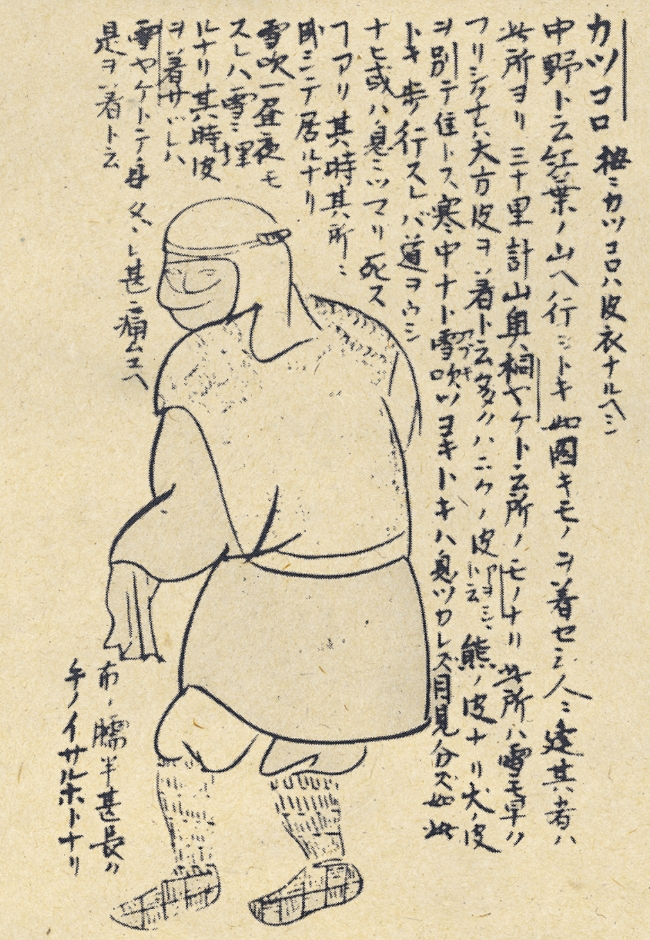 カツコロ 按ニカツコロハ皮衣ナルヘシ
中野ト云紅葉ノ山ヘ行シトキ如図キモノヲ着セシ人ニ逢其者ハ
此所ヨリ三十里計山奥桐ヤケト云所ノモノナリ此所ハ雪モ早ク
フリシケレハ大方皮ヲ着ト云多クハニクノ皮ト云 熊ノ皮ナリ犬ノ皮
ヲ別テ佳トス寒中ナト雪吹ツヨキトキハ息ツカレズ目見分ズ如此
フブキ
トキ歩行スレバ道ヲウシ
ナヒ或ハ息ミツマリ死ス
フアリ其時其所ニ
臥シテ居ルナリ
雪吹一昼夜モ
スレハ雪ニ埋
ルナリ其時皮
ヲ着サレハ
雪ヤケトテ身タヾレ甚ニ痛ムユヘ
是ヲ着ト云
布ノ襦半甚長ク
手ノイサルホトナリ